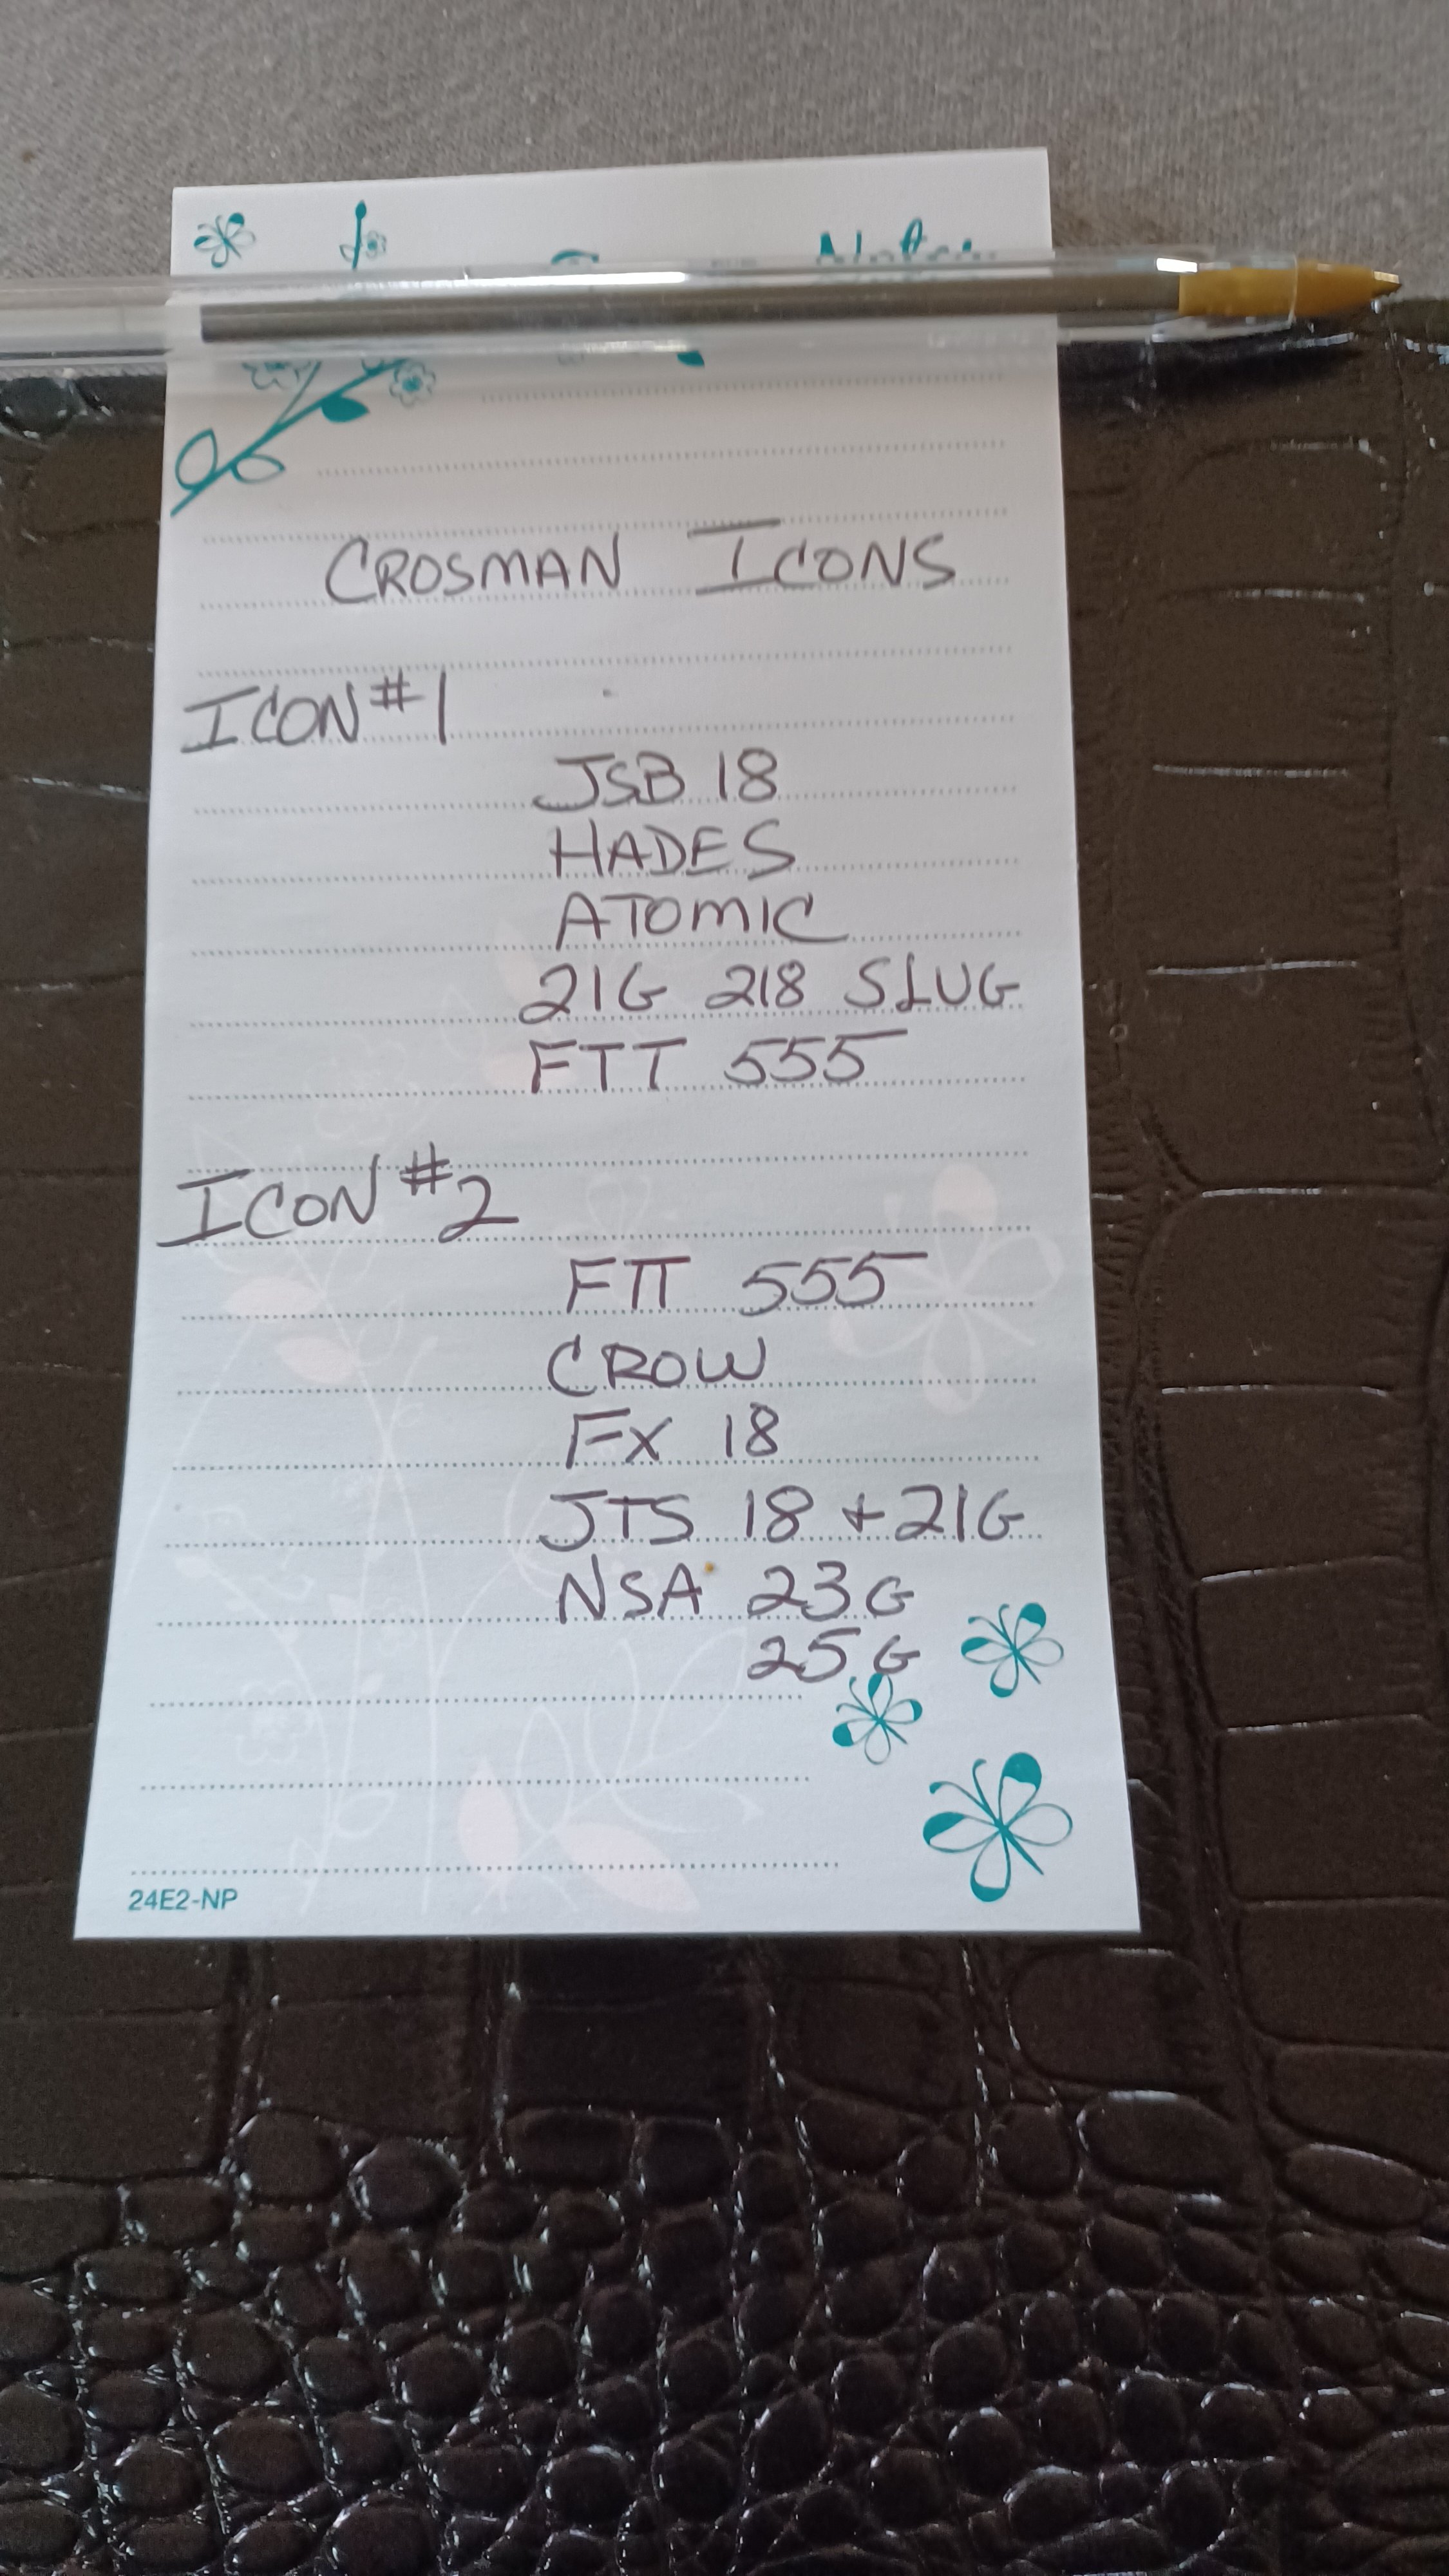 Notes
CROSMAN ICONS
ICON #1
JSB 18
HADES
ATOMIC
21G 218 SLUG
FTT 555
ICON #2
FTT 555
CROW
FX 18
JTS 18 + 21G
NSA 23G
25G
24E2-NP